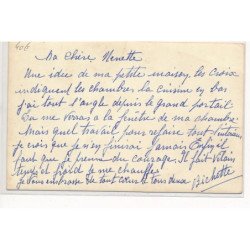 Ma Chère Nenette
Une idée de ma petite maison, les croix
indiquent les chambres la cuisine en bas
j'ai tout l'angle depuis le grand portail
Tu me verras à la fenêtre de ma chambre
Mais quel travail pour refaire tout l'intérieur
je crois que je n'en finirai jamais Enfin il
faut que je prenne du courage. Il fait vilain
temps et froid je me chauffe
je vous embrasse de tout coeur tous deux